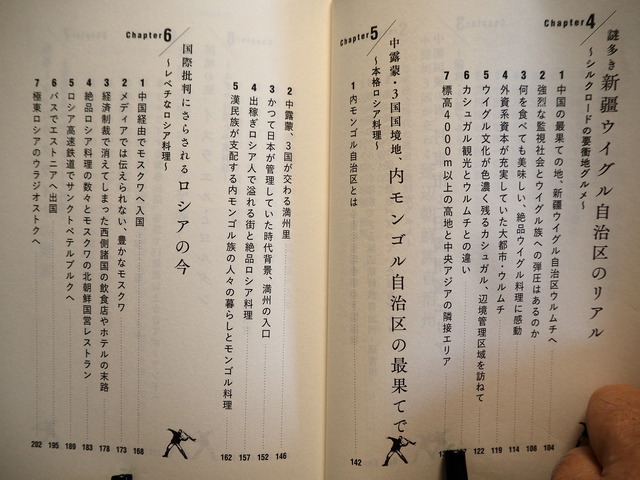 Chapter4
謎多き新疆ウイグル自治区のリアル
～シルクロードの要衝地グルメ～
1 中国の最果ての地、新疆ウイグル自治区ウルムチへ 104
2 強烈な監視社会とウイグル族への弾圧はあるのか 108
3 何を食べても美味しい、絶品ウイグル料理に感動 114
4 外資系資本が充実していた大都市・ウルムチ 116
5 ウイグル文化が色濃く残るカシュガル、辺境管理区域を訪ねて 119
6 カシュガル観光とウルムチとの違い 122
7 標高4000m以上の高地と中央アジアの隣接エリア
Chapter5
中露蒙・3国国境地、内モンゴル自治区の最果てで
～本格ロシア料理～
1 内モンゴル自治区とは 142
2 中露蒙、3国が交わる満州里 146
3 かつて日本が管理していた時代背景、満州の入口 152
4 出稼ぎロシア人で溢れる街と絶品ロシア料理 157
5 漢民族が支配する内モンゴル族の人々の暮らしとモンゴル料理 162
Chapter6
国際批判にさらされるロシアの今
～レベチなロシア料理～
1 中国経由でモスクワへ入国 168
2 メディアでは伝えられない、豊かなモスクワ 173
3 経済制裁で消えてしまった西側諸国の飲食店やホテルの末路 178
4 絶品ロシア料理の数々とモスクワの北朝鮮国営レストラン 183
5 ロシア高速鉄道でサンクトペテルブルクへ 189
6 バスでエストニアへ出国 195
7 極東ロシアのウラジオストクへ 202